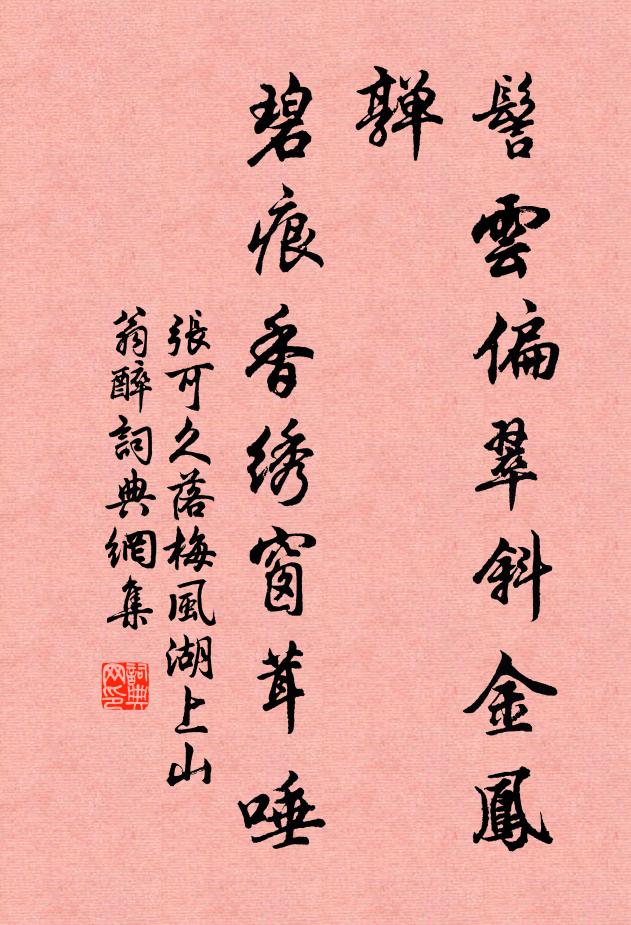 髻雲偏翠斜金鳳
嚲
碧痕香綉窗茸唾
張可久落梅風湖上山
翁醉詞典網集
詞典
网印